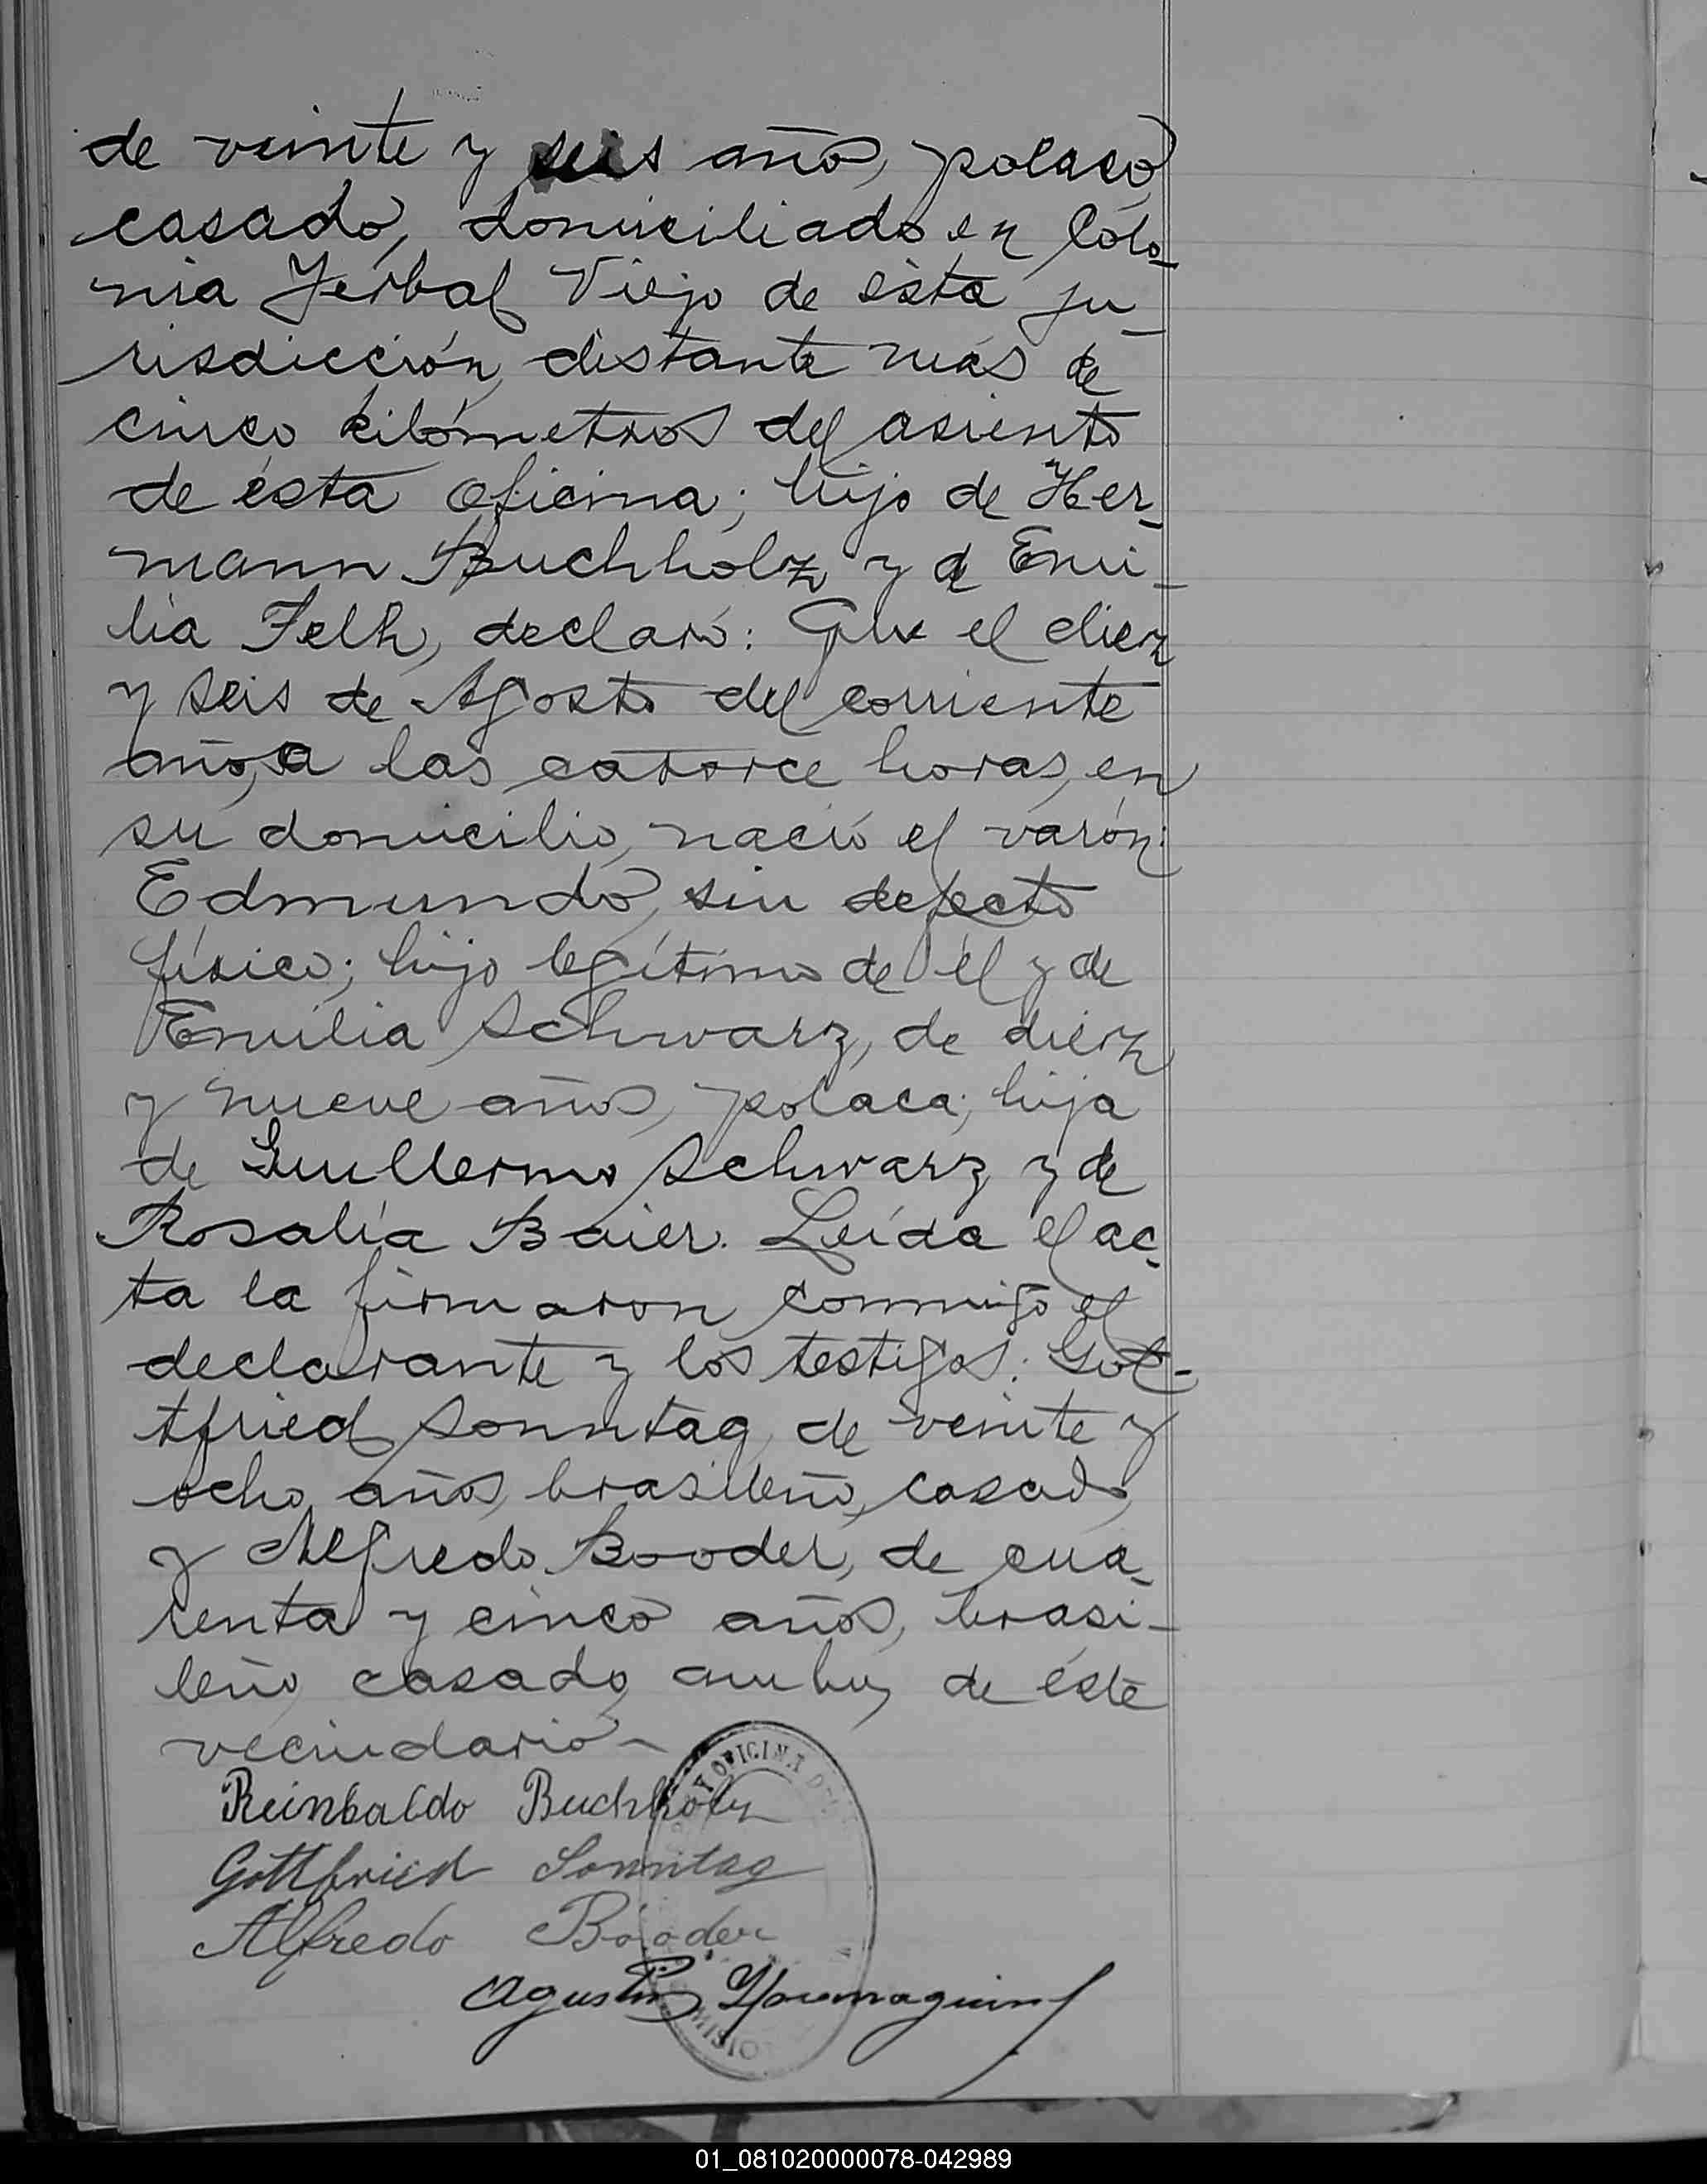 de veinte y seis años, polaco,
casado, domiciliado en Colo-
nia Yerbal Viejo de ésta ju-
risdicción, distante más de
cinco kilómetros del asiento
de ésta oficina; hijo de Her-
mann Buchholz y de Emi-
lia Felh, declaró: Que el diez
y seis de Agosto del corriente
año, a las catorce horas, en
su domicilio, nació el varón:
Edmundo, sin defecto
físico; hijo legítimo de él y de
Emilia Schwarz, de diez
y nueve años, polaca; hija
de Guillermo Schwarz y de
Rosalía Baier. Leída el ac-
ta la firmaron conmigo el
declarante y los testigos: Got-
tfried Sonntag, de veinte y
ocho años, brasileño, casado
y Alfredo Booder, de cua-
renta y cinco años, brasi-
leño, casado, ambos de éste
vecindario-
Reinbaldo Buchholz
Gottfried Sonntag
Alfredo Booder
OFICINA
Agustin
MISIO
01_081020000078-042989